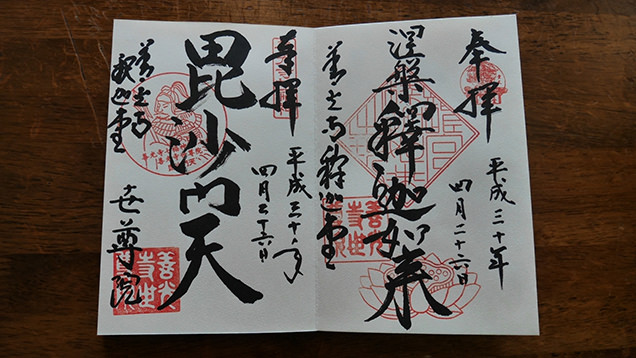 奉拝
平成三十年
四月二十六日
涅槃釋迦如来
善光寺釋迦堂
奉拝
平成三十年
四月二十六日
毘沙門天
善光寺
釈迦堂
世尊院
善光
寺世